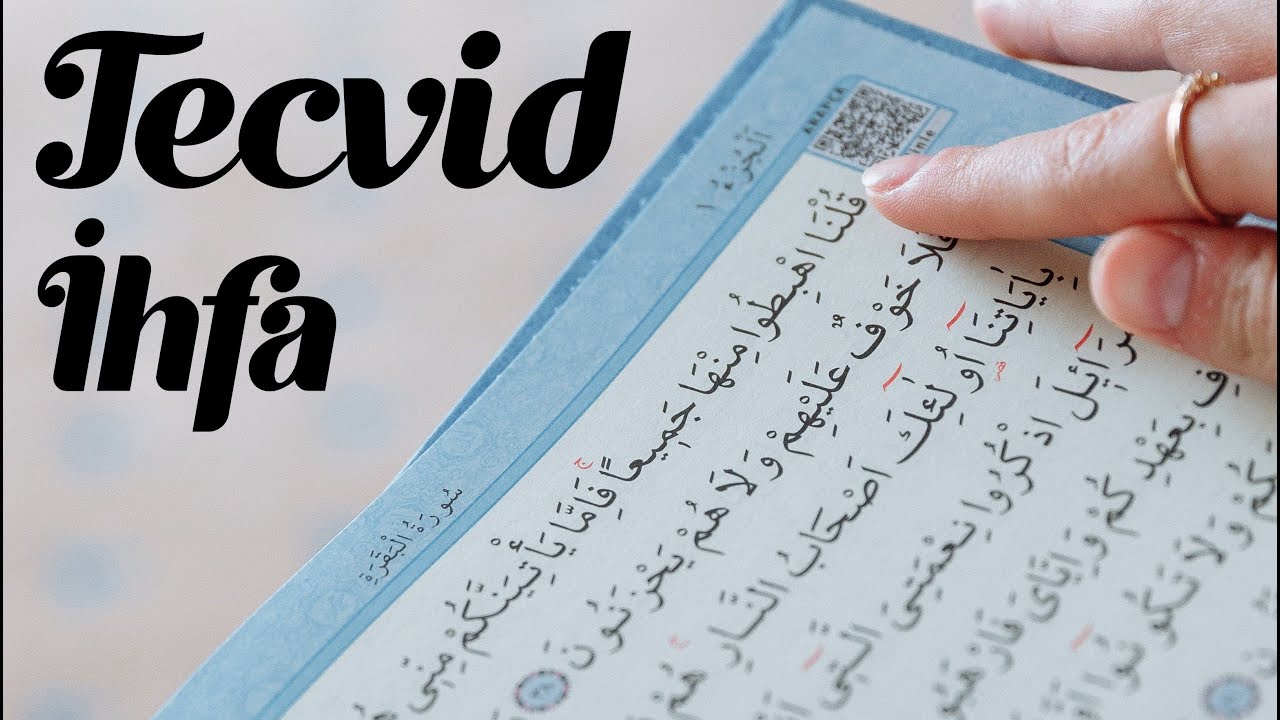 Tecvid
İhfa
اَلْجُزْءُ ١
سُورَةُ الْبَقَرَةِ
قُلْنَا اهْبِطُوا مِنْهَا جَمِيعًاۚ فَاِمَّا يَأْتِيَنَّكُمْ مِنِّى
فَلَا خَوْفٌ عَلَيْهِمْ وَلَا هُمْ يَحْزَنُونَ
بِاٰيَاتِنَٓا اُولٰٓئِكَ اَصْحَابُ النَّارِۚ هُمْ
اذْكُرُوا نِعْمَتِىَ الَّتٖٓى
بِعَهْدِكُمْ وَاِيَّاىَ
وَلَا تَكُونُٓوا